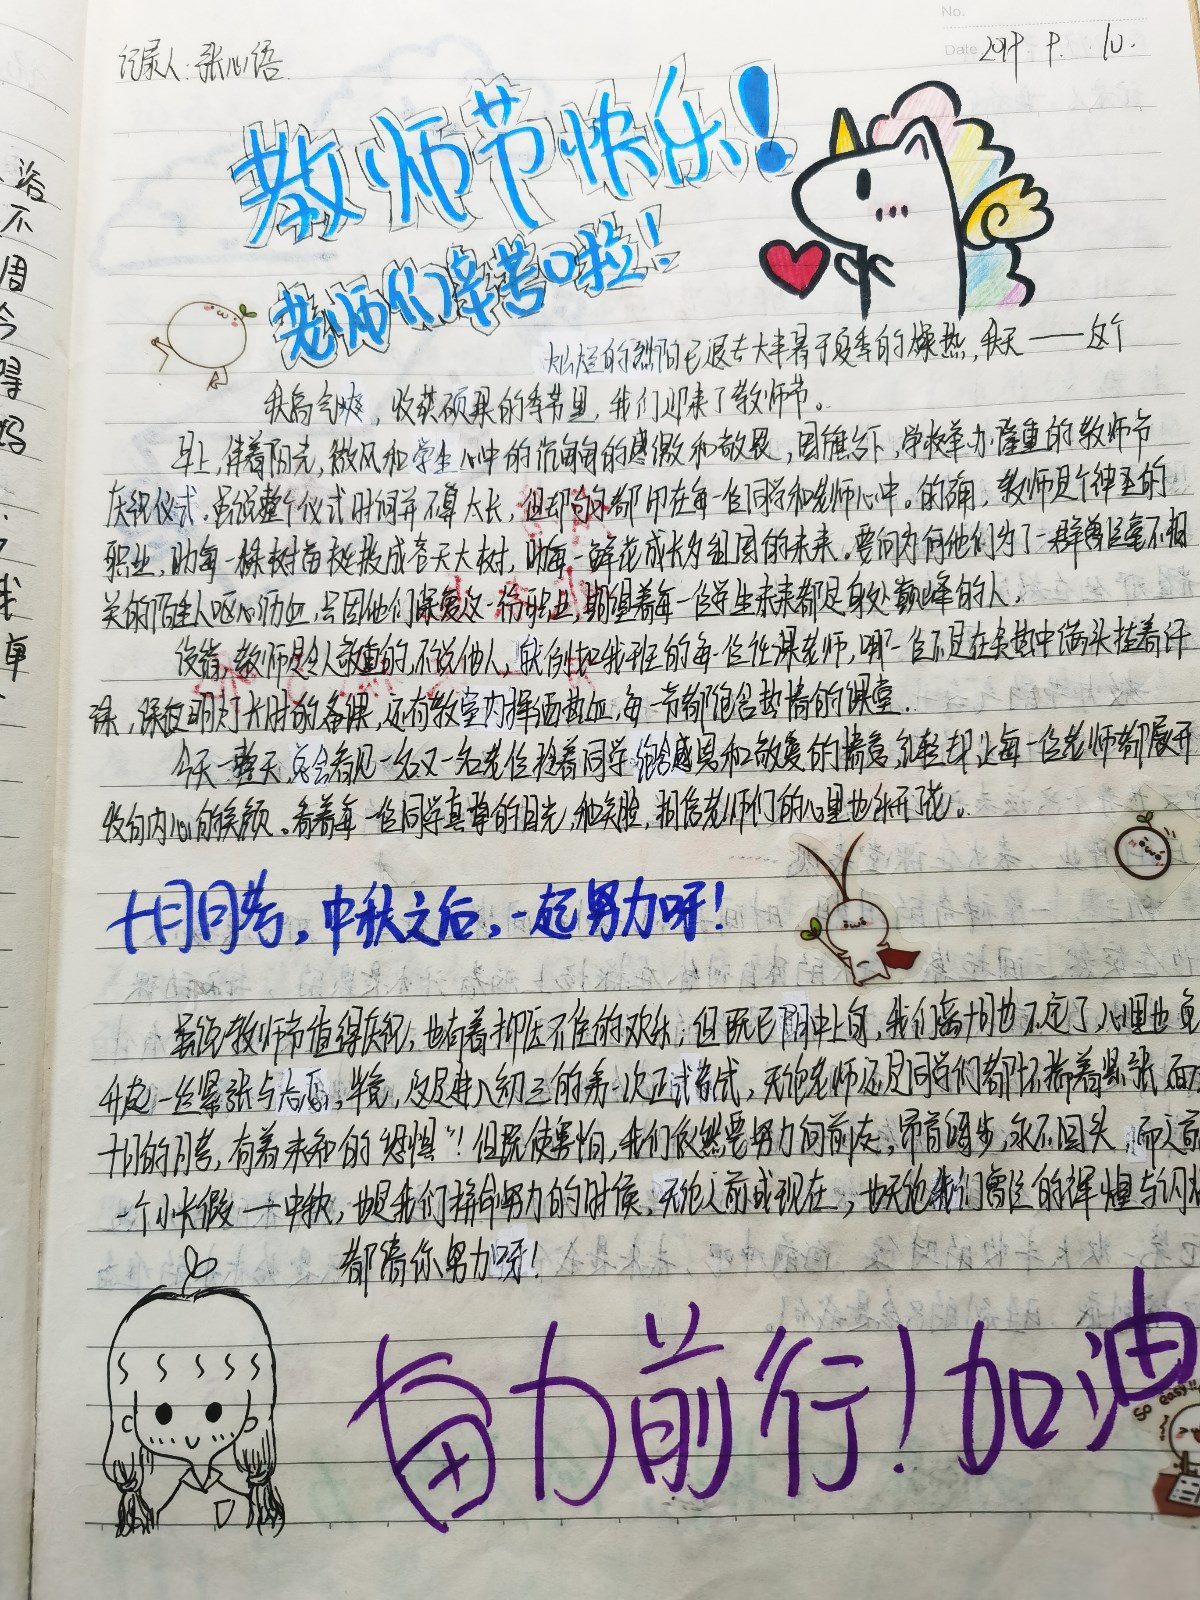 No.
记录人:张心语
Date 2019 9. 10.
教师节快乐!
老师们辛苦啦!
灿烂的烈阳已退去大半暑于夏季的燥热,秋天——这个
秋高气爽,收获硕果的季节里,我们迎来了教师节。
早上,伴着阳光,微风和学生心中的沉甸甸的感激和敬畏,国旗台下,学校举办隆重的教师节
庆祝仪式。虽说整个仪式时间并不算太长,但却句句都印在每一位同学和老师心中。的确,教师是个神圣的
职业,助每一棵树苗挺拔成苍天大树,助每一鲜花成长为祖国的未来。要问为何他们为了一群曾经毫不相
关的陌生人呕心沥血,只因他们深爱这一份职业,期望着每一位学生未来都是身处巅峰的人。
没错,教师是令人敬重的,不说他人,就例如我班的每一位任课老师,哪一位不是在炎热中满头挂着汗
深夜明灯长时的备课,还有教室内挥洒热血,每一节都饱含热情的课堂.
今天一整天,总会看见一名又一名老位拴着同学饱含感恩和敬爱的情意,礼轻却让每一位老师都展开
发自内心的笑颜。看着每一位同学真挚的目光,和笑脸,相信老师们的心里也乐开了花。
十月月考,中秋之后,一起努力呀!
虽说教师节值得庆祝,也有着抑压不住的欢乐;但既已阴中上旬,我们离十月也不远了,心里也免
升起一丝紧张与忐忑,毕竟,这是进入初三的第一次正式考试,无论老师还是同学们都怀揣着紧张 面对
十月的月考,有着未知的“恐惧”!但既使害怕,我们依然要努力向前走,昂首阔步,永不回头,而之前
一个小长假——中秋,也是我们拼命努力的时候,无论之前或现在,也无论我们曾经的辉煌与闪
都请你努力呀!
奋力前行!加油
So easy!!